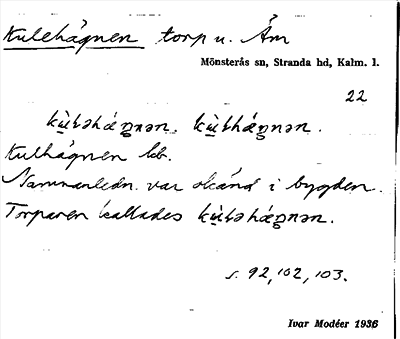 Kulehägnen torp u. Åm
Mönsterås sn, Stranda hd, Kalm. l.
22
kùlǝhæŋnǝn. kùlhæŋnǝn.
Kulhägnen kb.
Namnanledn. var okänd i bygden.
Torparen kallades kùlǝhæŋnǝn.
s. 92, 102, 103.
Ivar Modéer 1936